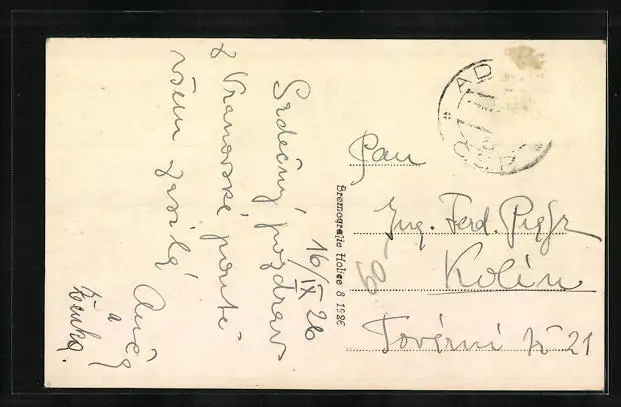 16/IX 26
Srdečný pozdrav
z Vranovské pouti
všem zasílá
a
Ženka.
Bromografie Holice 8 1926
Pan
Ing. Ferd.
Kolín
Tovární 21
60
AD